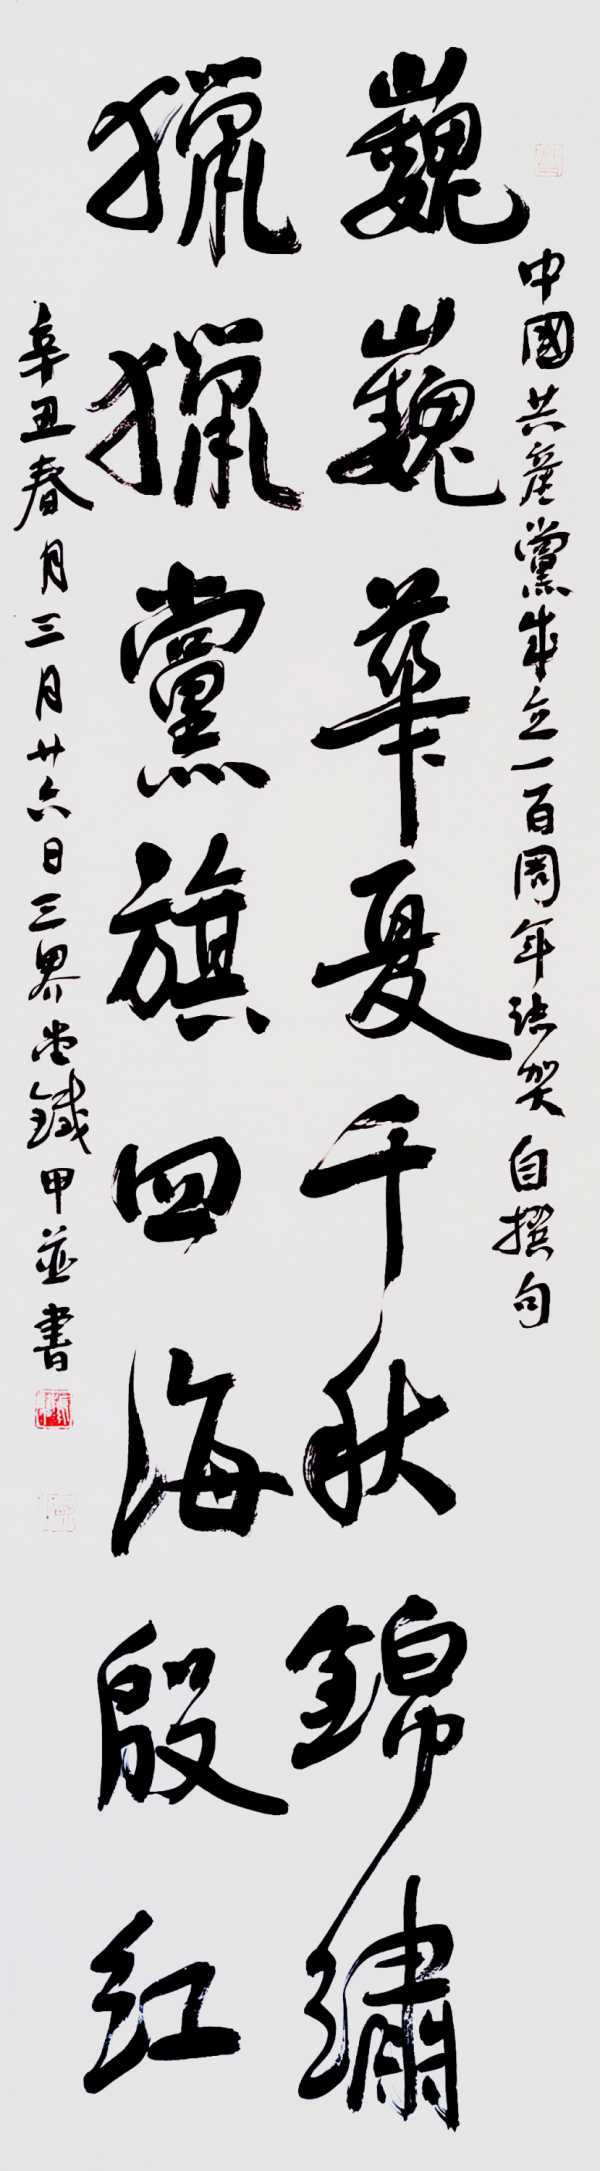 中國共產黨成立一百周年誌賀自撰句
巍巍華夏千秋錦繡
獵獵黨旗四海殷紅
辛丑春月三月廿六日三界堂鐵甲並書